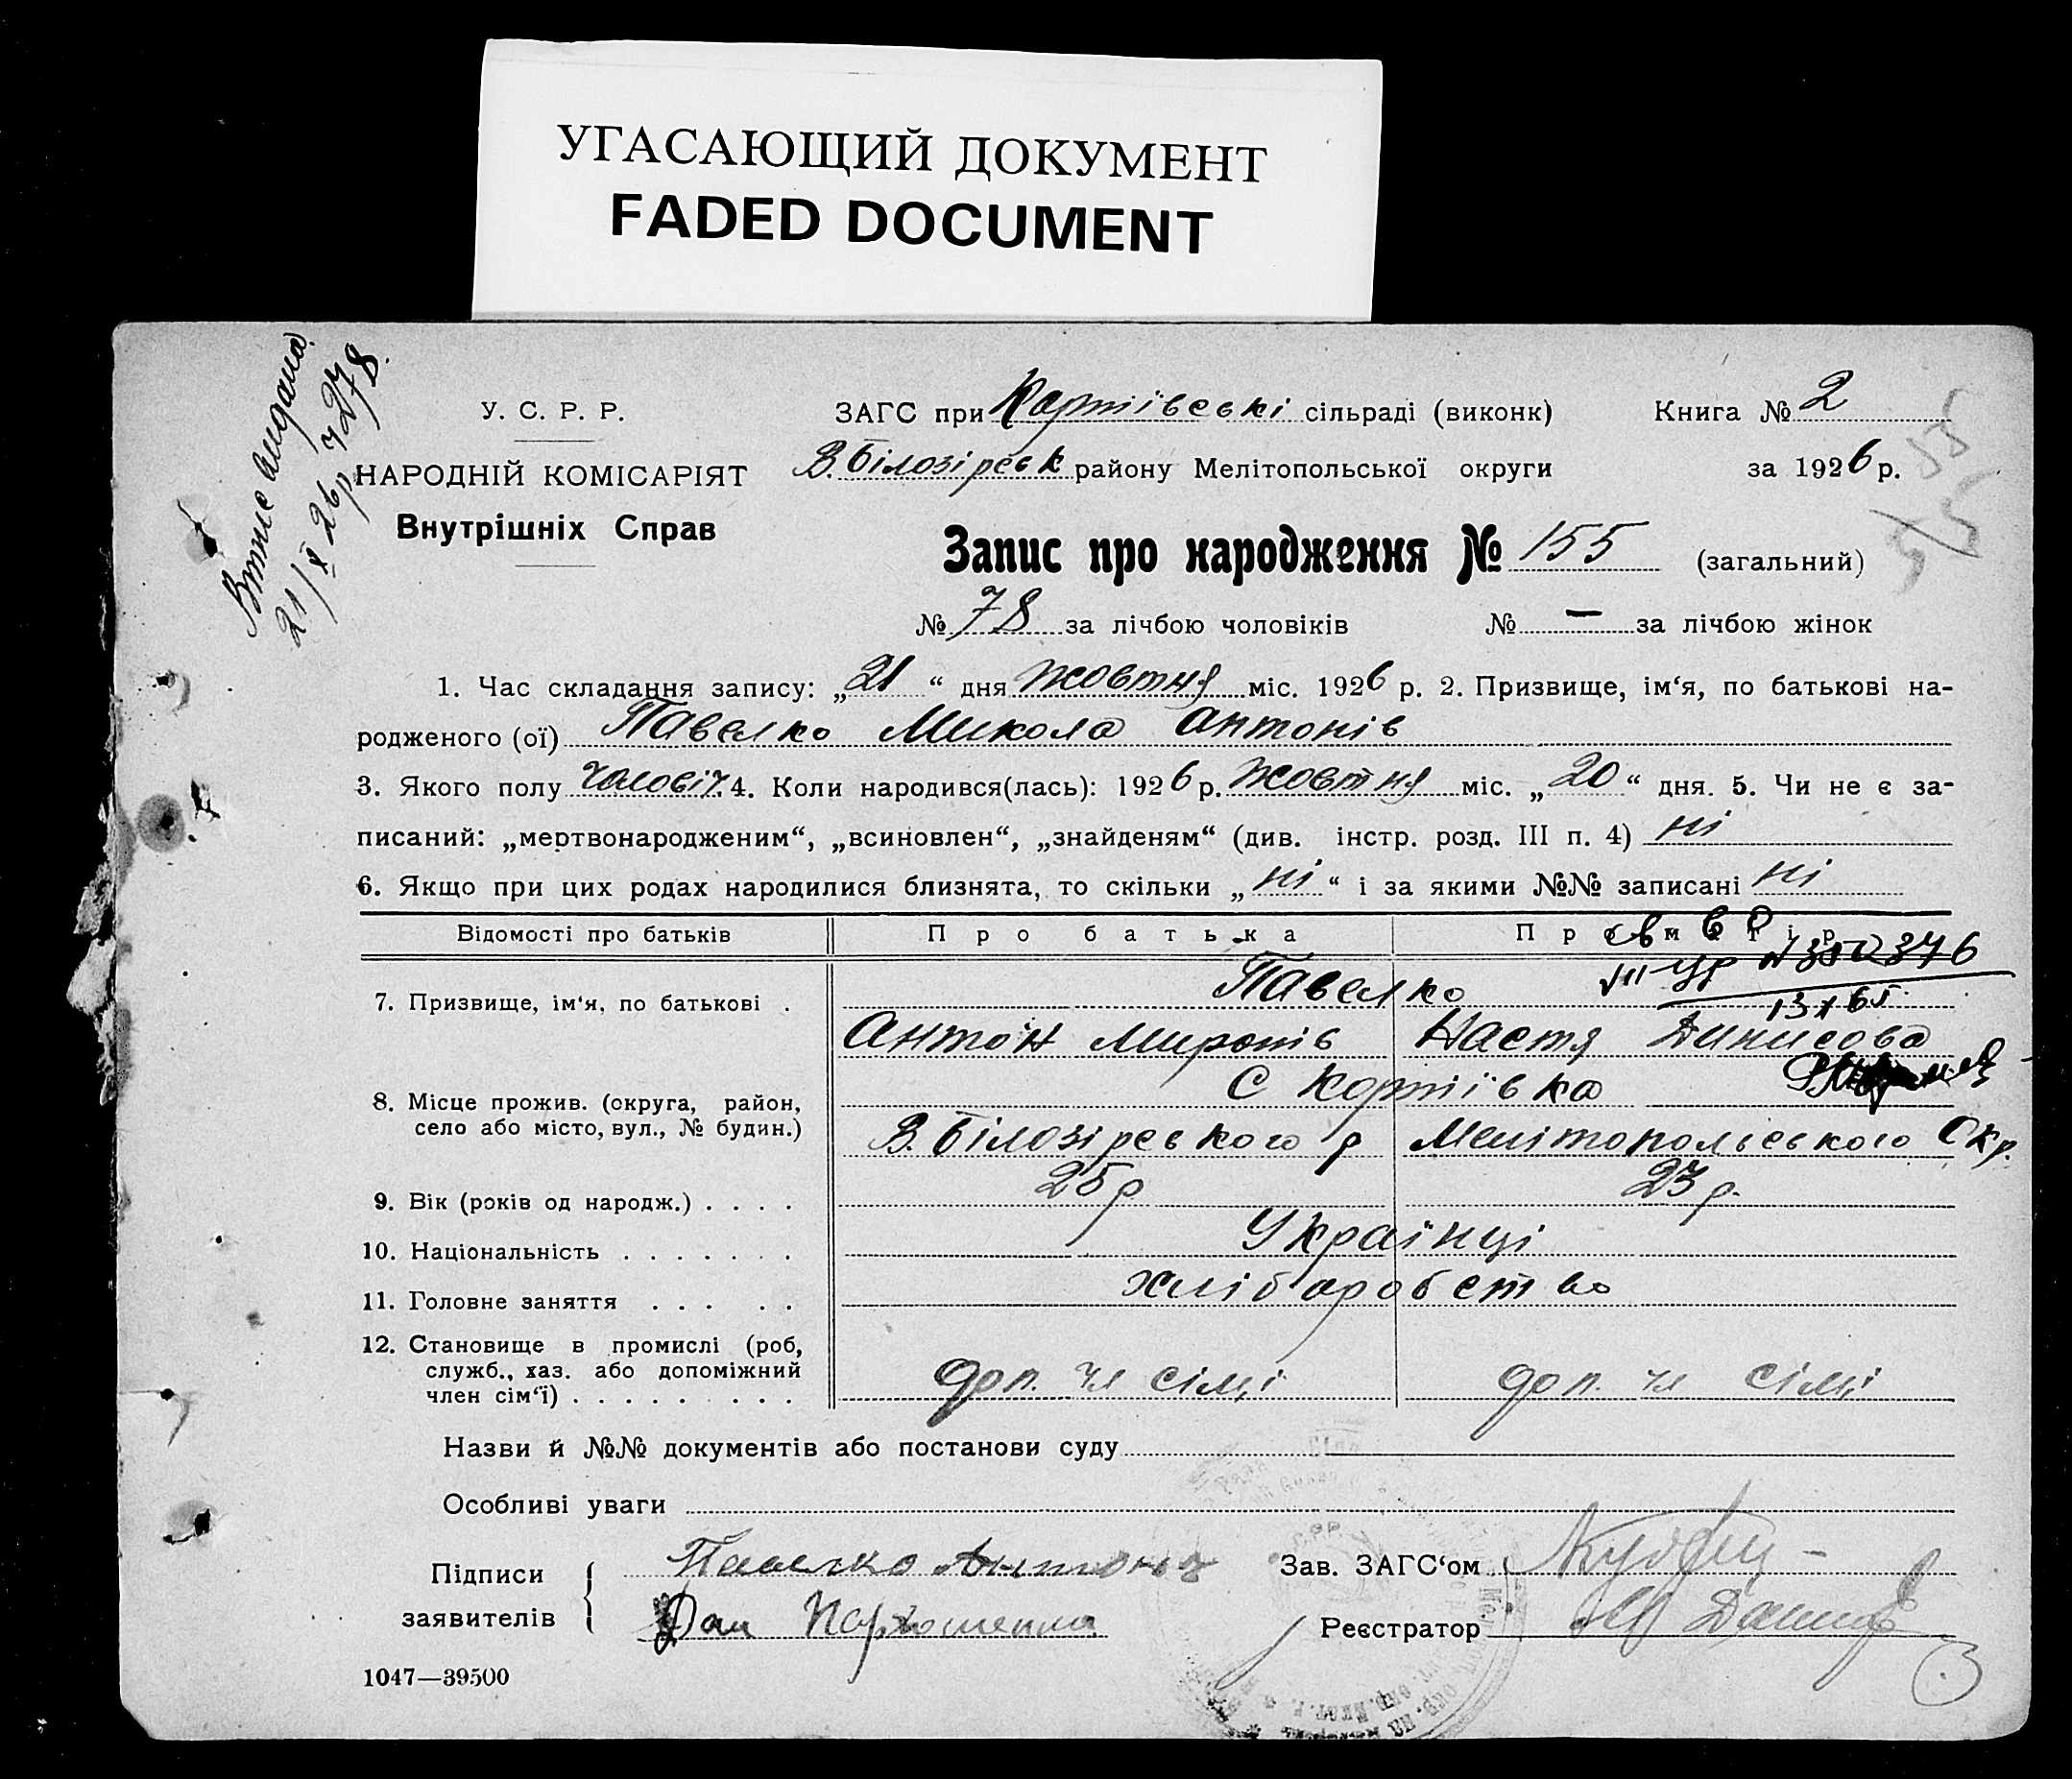 УГАСАЮЩИЙ ДОКУМЕНТ
FADED DOCUMENT
Втпис видана
21/X 26р 7278.
У. С. Р. Р.
НАРОДНІЙ КОМІСАРІЯТ
Внутрішніх Справ
ЗАГС при Картівські сільраді (виконк)
Книга № 2
В. Білозірськ району Мелітопольської округи
за 1926 р.
Запис про народження № 155 (загальний)
№ 78 за лічбою чоловіків № — за лічбою жінок
1. Час складання запису: „21“ дня жовтня міс. 1926 р. 2. Призвище, ім‘я, по батькові на-
родженого (ої) Павелко Микола Антонів
3. Якого полу чоловіч. 4. Коли народився(лась): 1926 р. жовтня міс. „20“ дня. 5. Чи не є за-
писаний: „мертвонародженим“, „всиновлен“, „знайденям“ (див. інстр. розд. III п. 4) ні
6. Якщо при цих родах народилися близнята, то скільки „ні“ і за якими №№ записані ні
Відомості про батьків
Про батька
Про матір
7. Призвище, ім‘я, по батькові .
Павелко
Антон Миронів Настя Динисова
13 X 65
8. Місце прожив. (округа, район,
село або місто, вул., № будин.)
С Картіївка
В. Білозірського р Мелітопольського Окр.
9. Вік (років од народж.) . . . .
25р 23р.
10. Національність . . . . . . .
Українці
11. Головне заняття . . . . .
хліборобство
12. Становище в промислі (роб,
служб., хаз. або допоміжний
член сім‘ї) . . . . . . . . .
доп. чл сімі доп. чл сімі
Назви й №№ документів або постанови суду
Особливі уваги
Підписи
заявителів
Павелко Антон
Зав. ЗАГС‘ом
Реєстратор
1047—39500